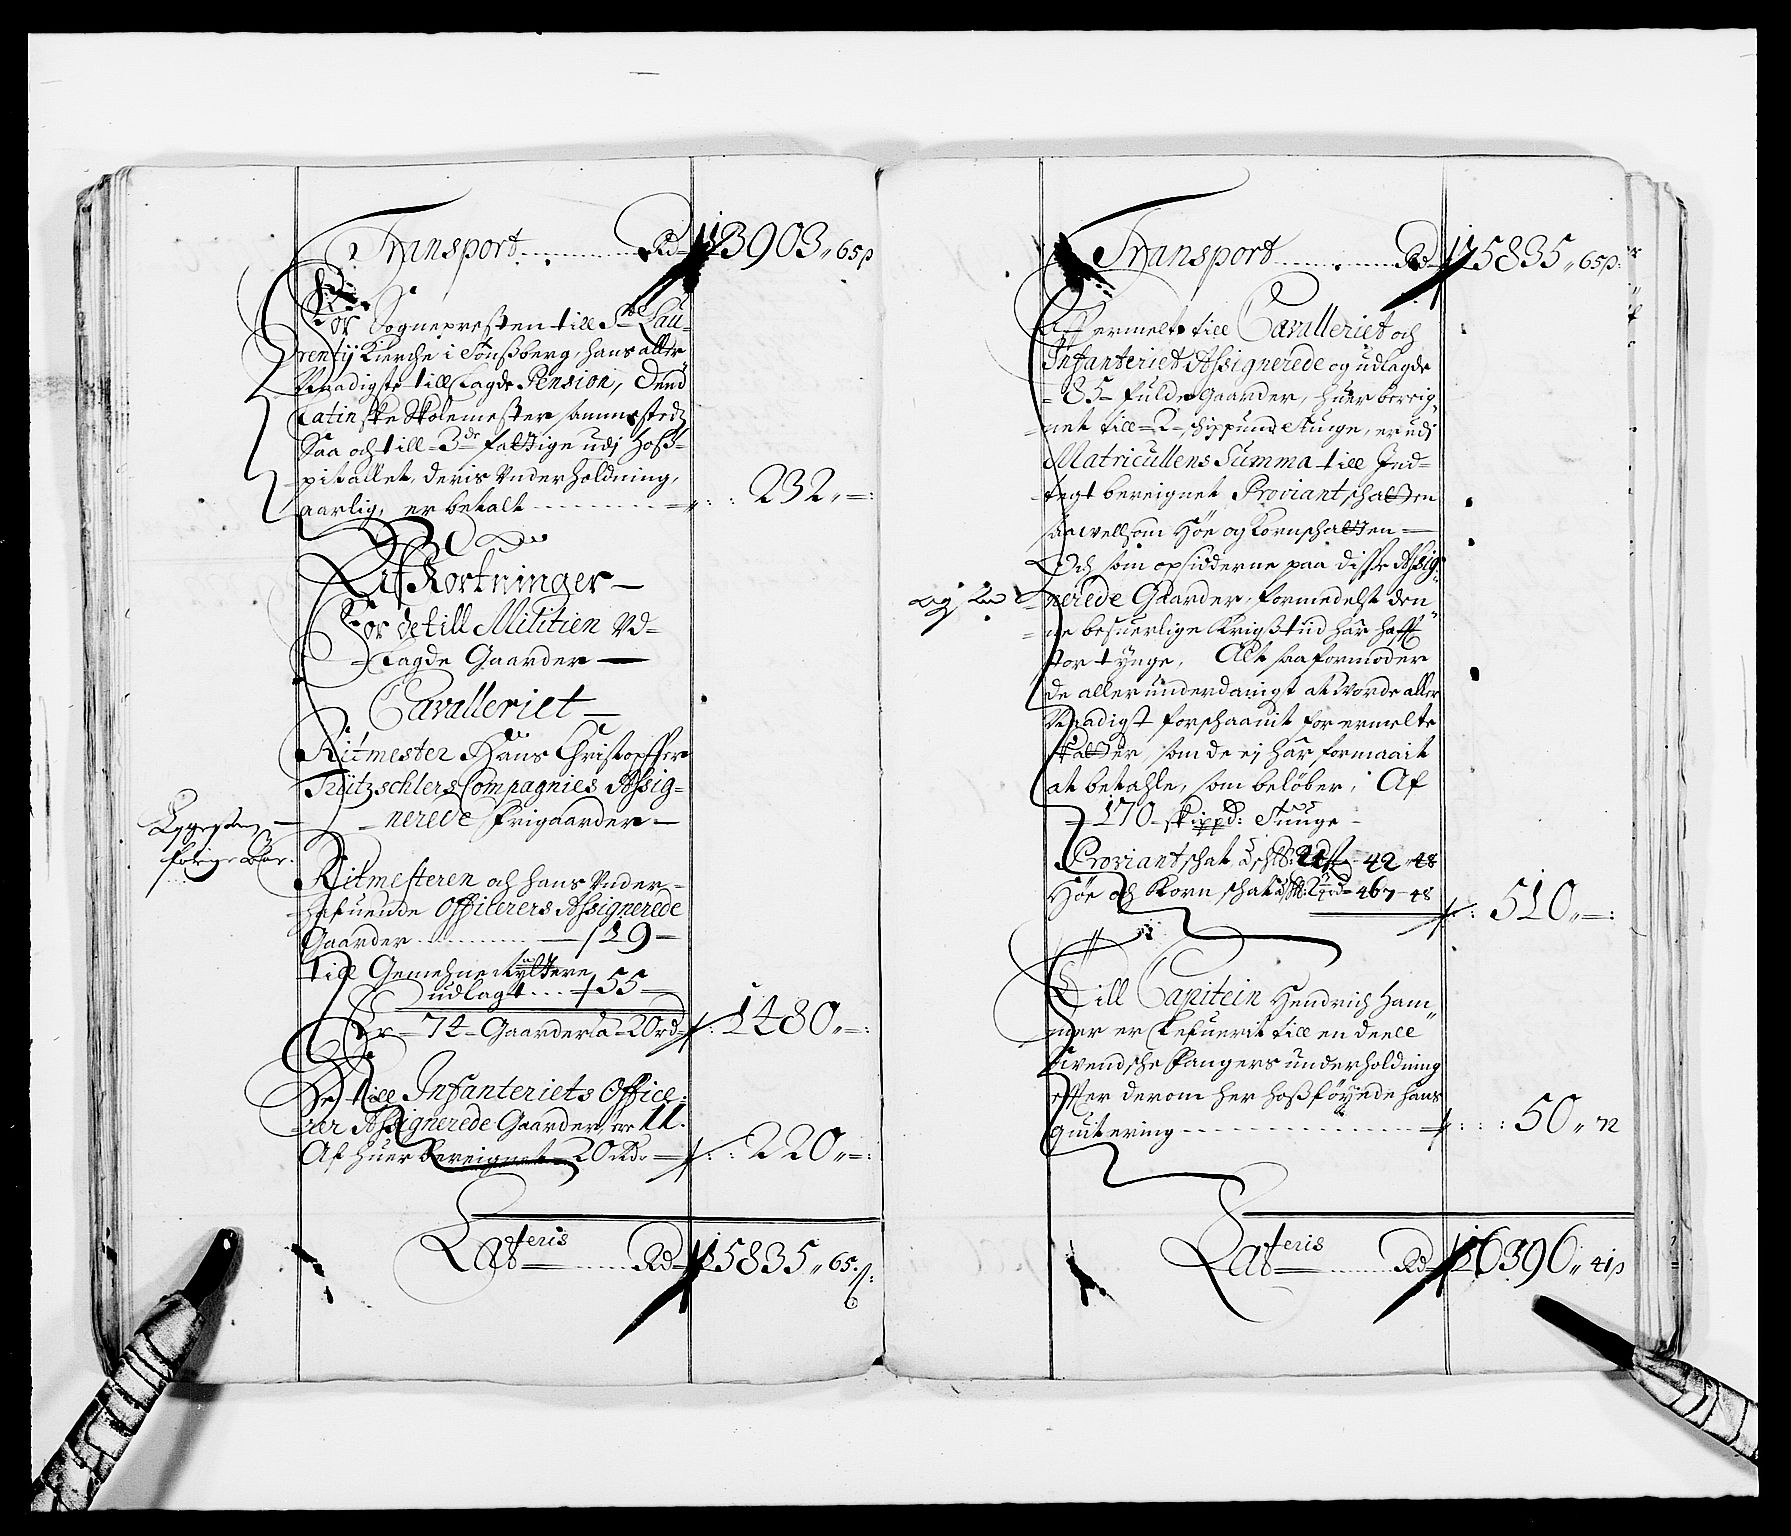 Transport ........ Rd 13903 „ 65 s
For Sognepresten till St. Lau-
rentij Kierche i Tønsberg, hans aller
Naadigste tillLagde Pension, Dend
Latinske Skolemester sammesteds
Saa och till 3de fattige udj Hoß-
pitallet, deris Underholdning,
aarlig, er betalt - - - - 232 „ - :
Af Kortninger -
For de till Militien Ud-
Lagde Gaarder -
Cavalleriet -
Ritmester Hans Christopffer
Trützschlers Compagnies Assig-
nerede Frigaarder -
forige
Ritmesteren och hans Under-
hafuende Officerers Assignerede
Gaarder ........ - 19 -
till Gemehne Ryttere
udlagt .... 55 -
Er - 74 - Gaarder a 20 rd 1480 „ - :
De till Infanteriets Office-
rer Assignerede Gaarder, ere 11.
Af huer bereignet 20 Rdr - 220 „ - :
Lateris ........ Rd 15835 „ 65 s:
Transport ........ Rd 15835 „ 65 s:
Ofermelte till Cavalleriet och
Infanteriet Assignerede og udlagde
- 85 - fulde Gaarder, huer bereig-
net till - 2 - skippund tunge, er udj
Matricullens Summa till Ind-
tegt bereignet Proviantschatten
saavellsom Høe og Kornschatten -
Och som opsidderne paa disse Assig-
nerede Gaarder, formedelst den-
ne besuerlige Krigstid har hafft
stor tynge, Alt saa formoder
de allerunderdanigst at worde aller
Naadigst forschaanit for ermelte
skatter, som de ej har formaait
at betahle, som beløber, Af
- 170 - skippd: tunge -
Proviantschat 42 - 48
Høe och Kornschat 467 - 48 510 „ - :
Till Capitein Hendrich Ham-
mer er Lefuerit till en deell
Svendsche fangers underholdning
efter derom her hoßføyede hans
quitering - - - - 50 „ 72
Lateris ........ Rd 16396 „ 41 s